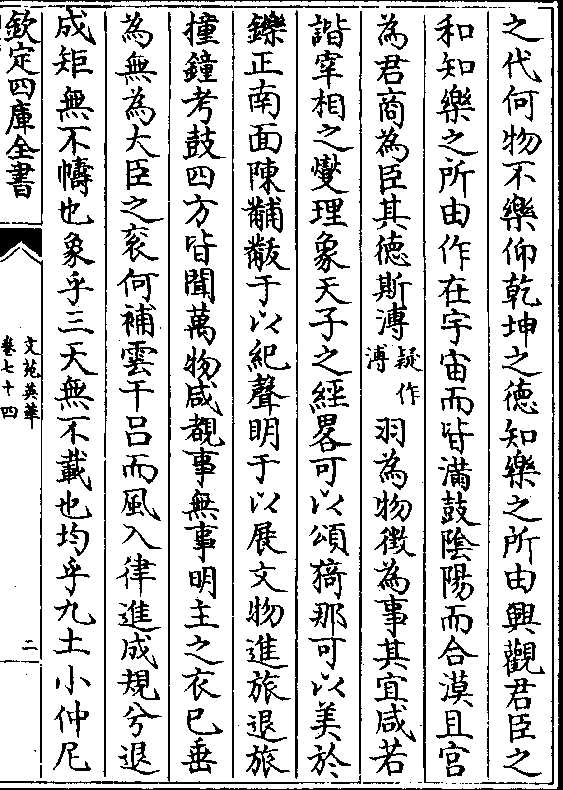 之代何物不樂仰乾坤之德知樂之所由興觀君臣之
和知樂之所由作在宇宙而皆滿鼓陰陽而合漠且宫
為君商為臣其德斯漙疑作溥羽為物徴為事其宜咸若
諧宰相之燮理象天子之經畧可以頌猗那可以美於
鑠正南面陳黼黻于以紀聲明于以展文物進旅退旅
撞鐘考鼓四方皆聞萬物咸覩事無事明主之衣已垂
為無為大臣之衮何補雲干吕而風入律進成規兮退
成矩無不幬也象乎三天無不載也均乎九土小仲尼
欽定四庫全書
文苑英華
卷七十四
二